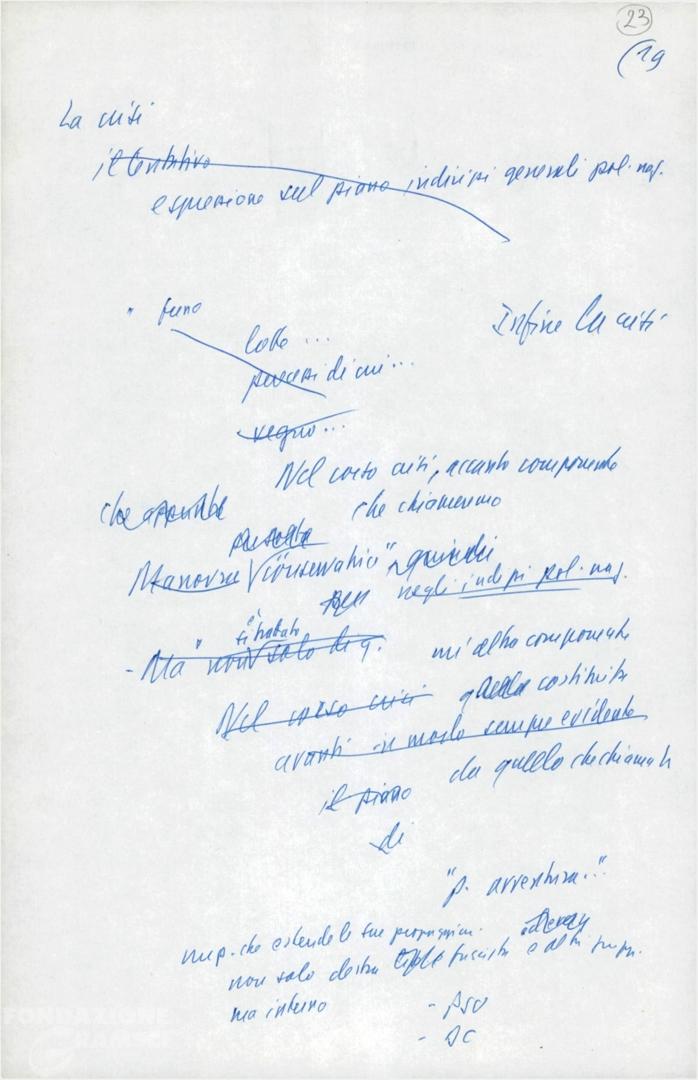 23
(19
La crisi
il tentativo
espressione sul piano indirizzi generali pol. naz.
" fumo
Infine la crisi
lotte ...
processi di cui ...
segno ...
Nel corso crisi, accanto componente
che chiameremo
Manovre "conservatrice" quindi
negli indirizzi pol. naz.
è
si trattato
- Ma " non solo di q. un'altra componente
Nel corso crisi quella costituita
avanti in modo sempre evidente
il piano da quello che chiamati
di
"p. avventura.."
un p. che estende le sue propaggini
non solo destra fascista e altri grupp.
ma interno - PSU
- DC
FONDAZIONE
GRAMSCI